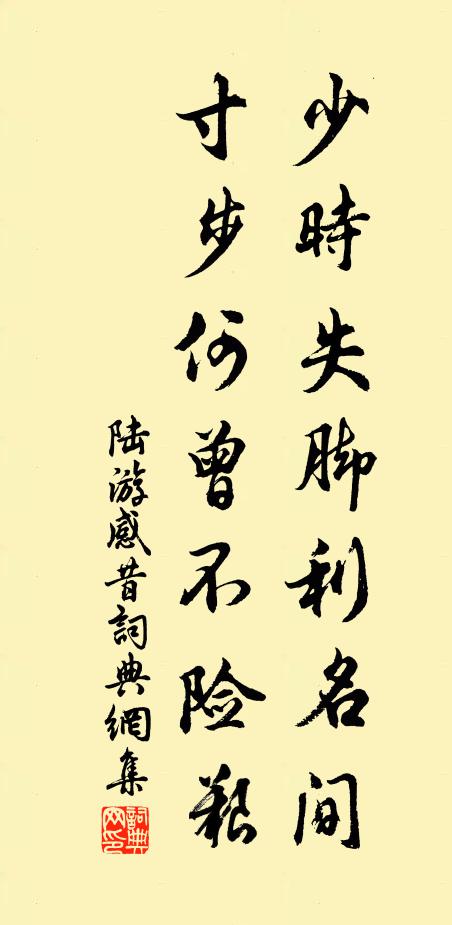 少時失脚利名间
寸步何曾不险艱
陆游感昔詞典網集
詞典网印